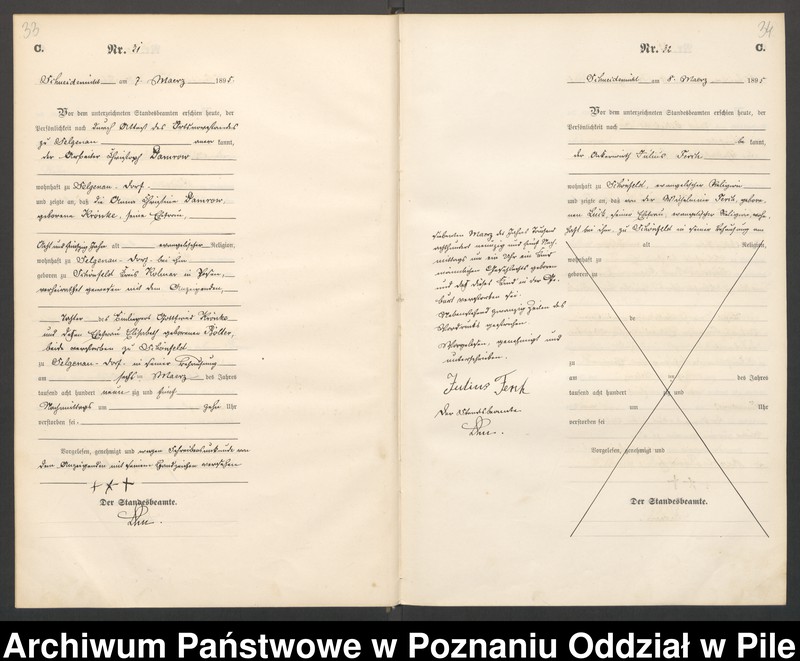 33
C.
Nr. 31
Schneidemühl am 7. Maerz 1895.
Vor dem unterzeichneten Standesbeamten erschien heute, der
Persönlichkeit nach durch Attest des Ortsvorstandes
zu Selgenau anerkannt,
der Arbeiter Christoph Damrow
wohnhaft zu Selgenau-Dorf.
und zeigte an, daß die Anna Christine Damrow
geborene Krönke, seine Ehefrau,
Acht und sechzig Jahre alt evangelischer Religion,
wohnhaft zu Selgenau-Dorf bei ihm
geboren zu Schönfeld Kreis Kolmar in Posen,
verheirathet gewesen mit dem Anzeigenden,
Tochter des Einliegers Gottfried Krönke
und dessen Ehefrau Elisabeth geborener Böller,
beide verstorben zu Schönfeld
zu Selgenau-Dorf. in seiner Behausung
am sechs Maerz des Jahres
tausend acht hundert neunzig und fünf
Nachmittags um zehn Uhr
verstorben sei.
Vorgelesen, genehmigt und wegen Schreibensunkunde von
dem Anzeigenden mit seinem Handzeichen versehen
+++
Der Standesbeamte.
34
Nr. 32
C.
Schneidemühl am 8. Maerz 1895
Vor dem unterzeichneten Standesbeamten erschien heute, der
Persönlichkeit nach
bekannt,
der Ackerwirth Julius Ferch
wohnhaft zu Schönfeld, evangelischer Religion
und zeigte an, daß von der Wilhelmine Ferch, gebore-
nen seiner Ehefrau, evangelischer Religion wohn-
haft bei ihm zu Schönfeld in seiner Behausung am
siebenten Maerz des Jahres Tausend
achthundert neunzig und fünf Nach-
mittags um ein Uhr ein Kind
männlichen Geschlechts geboren
und daß dieses Kind in der Ge-
burt verstorben sei.
Nebenstehend zwanzig Zeilen des
Vordrucks gestrichen.
Vorgelesen, genehmigt und
unterschrieben.
Julius Ferch
Der Standesbeamte
alt Religion,
wohnhaft zu
geboren zu
de
zu
am des Jahres
tausend acht hundert zig und
um Uhr
verstorben sei
Vorgelesen, genehmigt und
Der Standesbeamte.
Archiwum Państwowe w Poznaniu Oddział w Pile